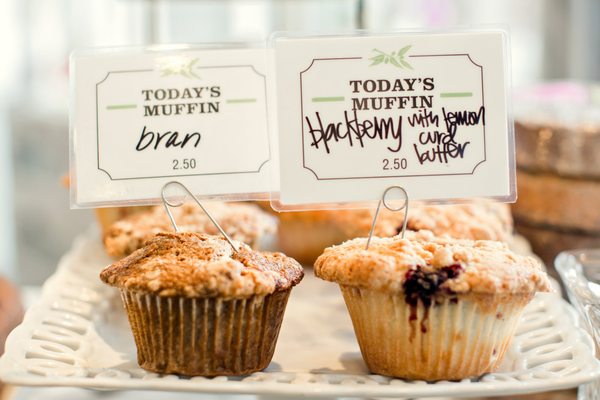 TODAY'S
MUFFIN
bran
2.50
TODAY'S
MUFFIN
blackberry with lemon
curd
butter
2.50